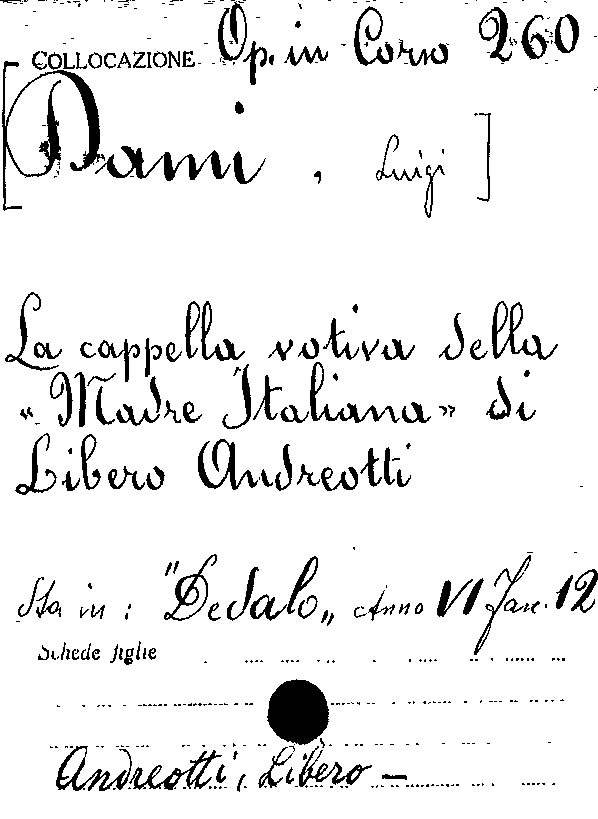 COLLOCAZIONE Op. in Corso 260
[Dami, Luigi]
La cappella votiva della
«Madre Italiana» di
Libero Andreotti
Sta in: "Dedalo„ Anno VI Fasc. 12
Schede figlie
Andreotti, Libero —